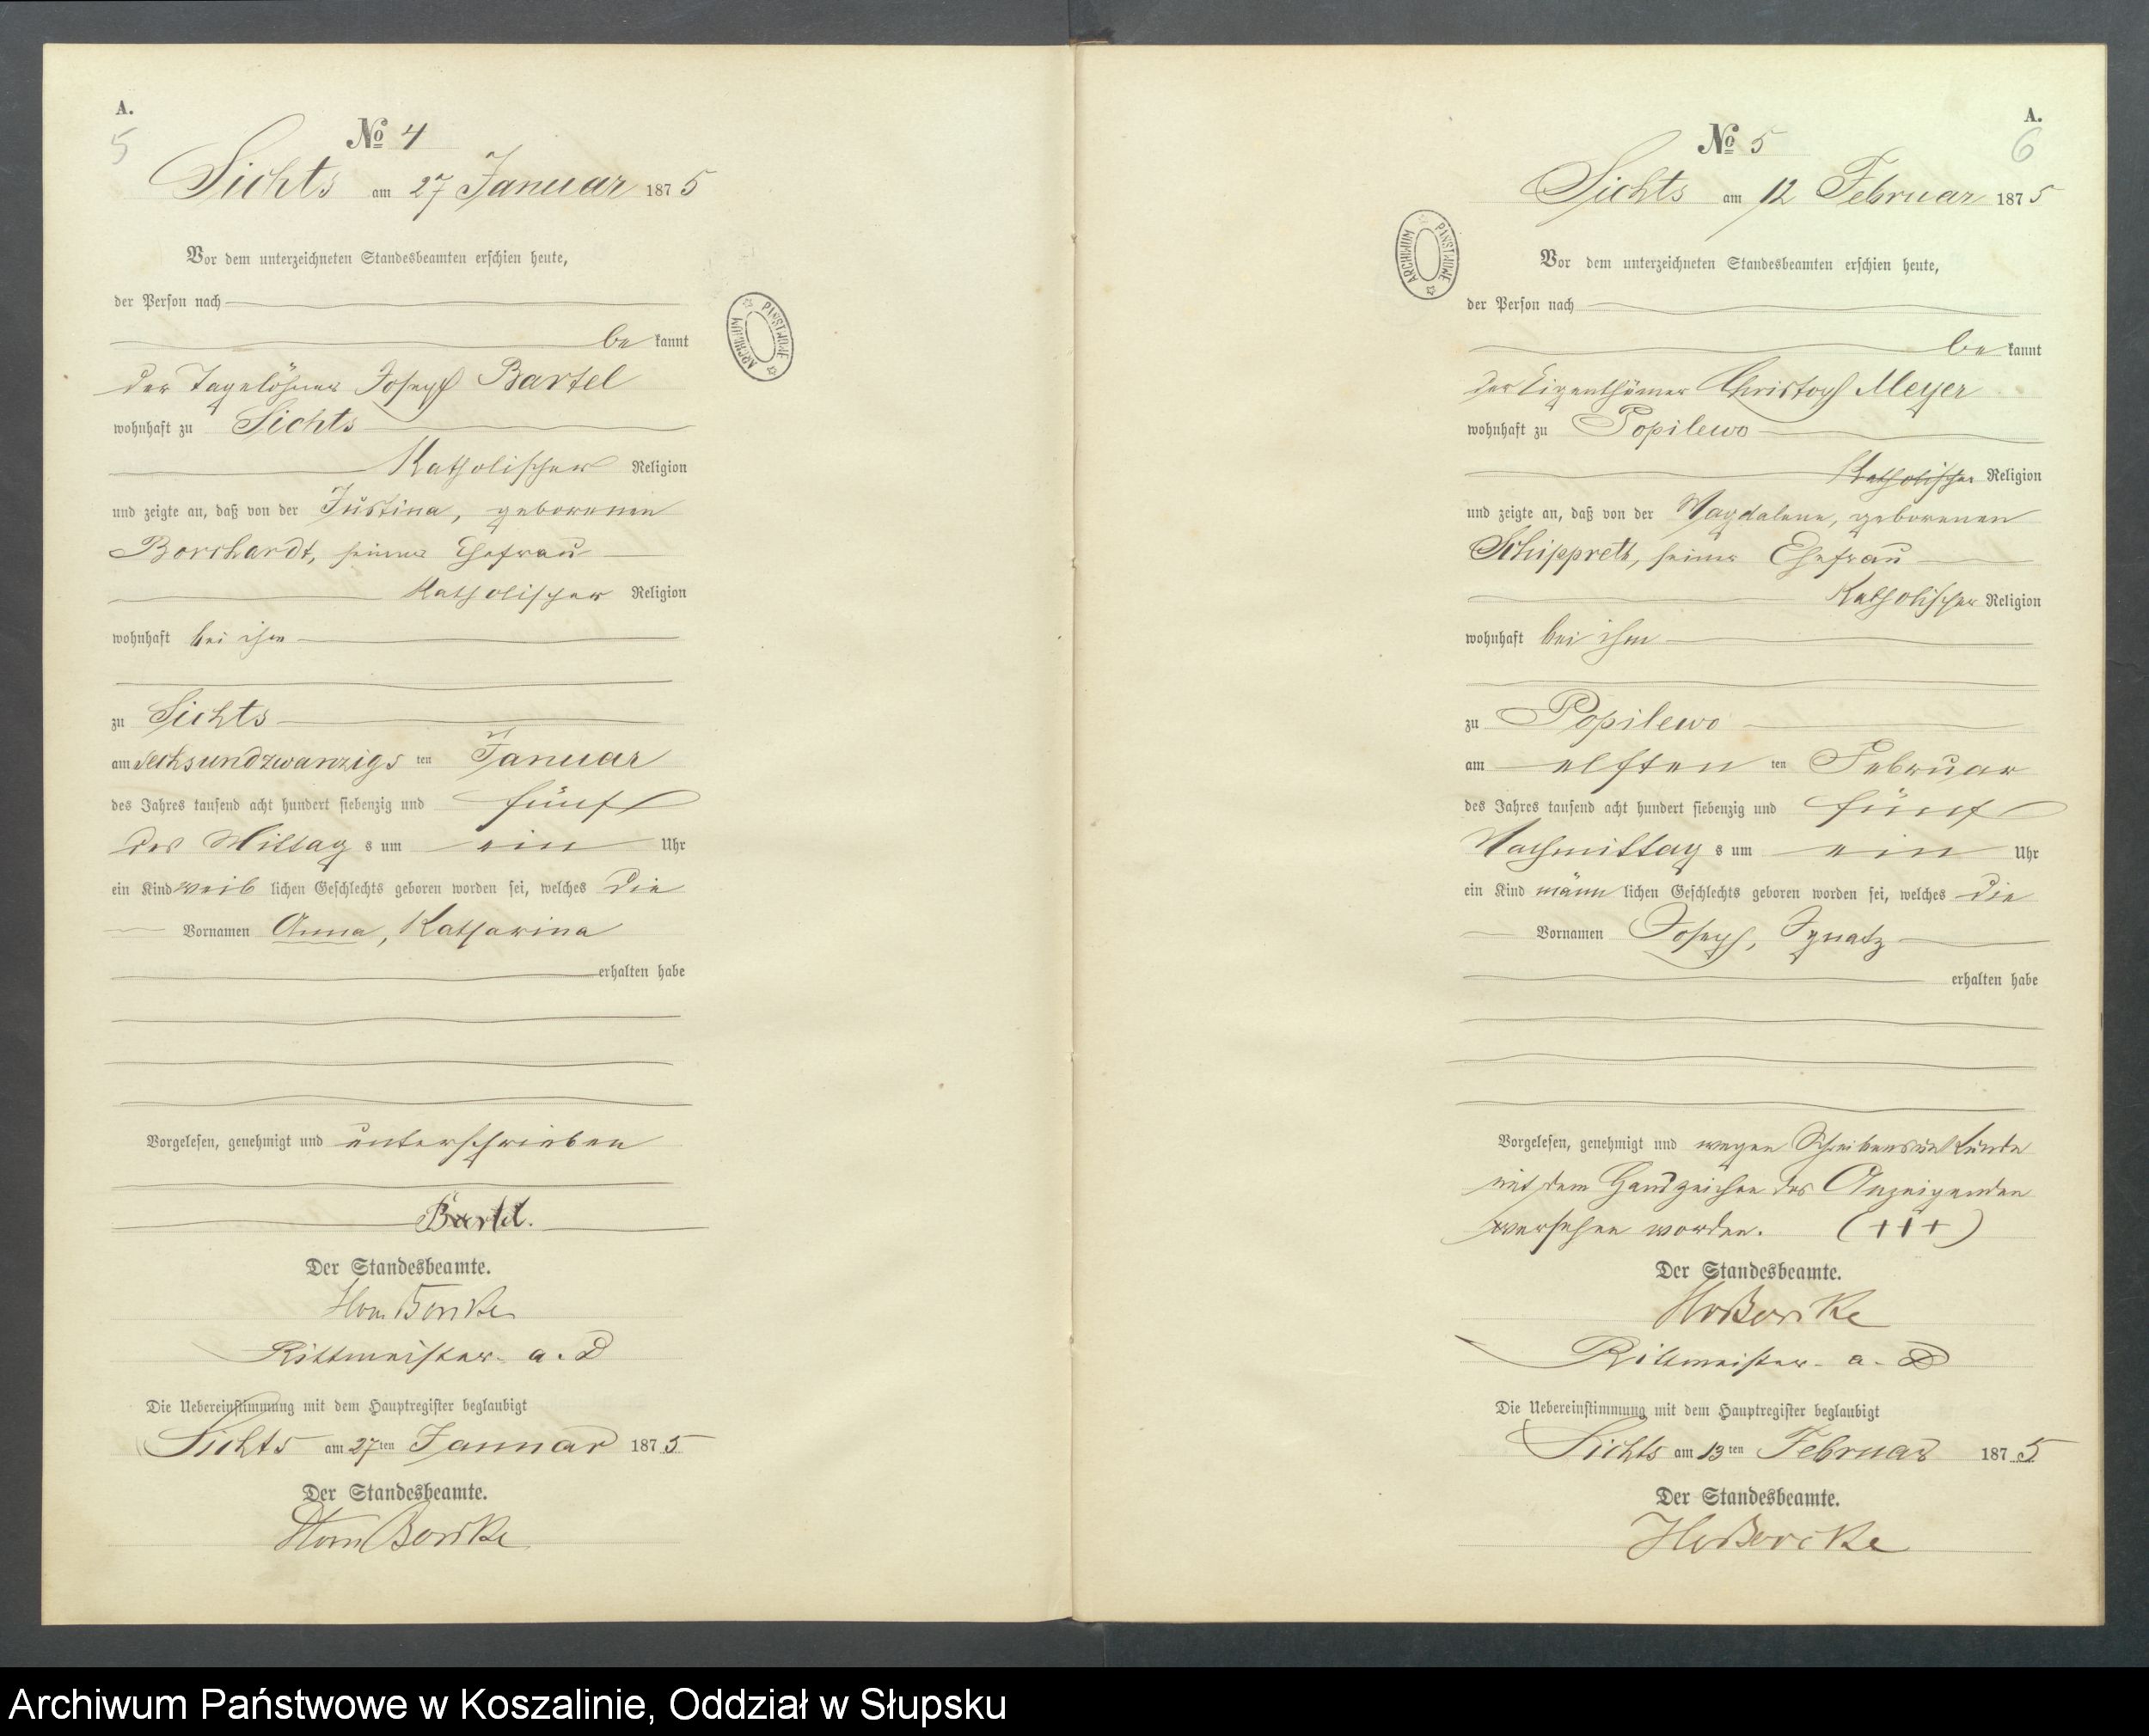 A.
5
No 4
Sichts am 27 Januar 1875
Vor dem unterzeichneten Standesbeamten erschien heute,
der Person nach
be kannt
der Tagelöhner Joseph Bartel
wohnhaft zu Sichts
Katholischer Religion
und zeigte an, daß von der Justina, geborenen
Borchardt, seiner Ehefrau
Katholischer Religion
wohnhaft bei ihm
zu Sichts
am Sechsundzwanzigs ten Januar
des Jahres tausend acht hundert siebenzig und fünf
des Mittag s um ein Uhr
ein Kind weib lichen Geschlechts geboren worden sei, welches die
Vornamen Anna, Katharina
erhalten habe
Vorgelesen, genehmigt und unterschrieben
Bartel.
Der Standesbeamte.
Borcke
Rittmeister a. D
Die Uebereinstimmung mit dem Hauptregister beglaubigt
Sichts am 27ten Januar 1875
Der Standesbeamte.
Borcke
A.
6
No 5
Sichts am 12 Februar 1875
Vor dem unterzeichneten Standesbeamten erschien heute,
der Person nach
be kannt
der Eigenthümer Christoph Meyer
wohnhaft zu Popilewo
Katholischer Religion
und zeigte an, daß von der Magdalene, geborenen
Schippreth, seiner Ehefrau
Katholischer Religion
wohnhaft bei ihm
zu Popilewo
am elften ten Februar
des Jahres tausend acht hundert siebenzig und fünf
Nachmittag s um ein Uhr
ein Kind männ lichen Geschlechts geboren worden sei, welches die
Vornamen Joseph, Ignatz
erhalten habe
Vorgelesen, genehmigt und wegen Schreibensunkunde
mit dem Handzeichen des Anzeigenden
versehen worden. (+++)
Der Standesbeamte.
HvBorcke
Rittmeister a. D
Die Uebereinstimmung mit dem Hauptregister beglaubigt
Sichts am 13ten Februar 1875
Der Standesbeamte.
HvBorcke
ARCHIWUM PAŃSTWOWE
ARCHIWUM PAŃSTWOWE
Archiwum Państwowe w Koszalinie, Oddział w Słupsku